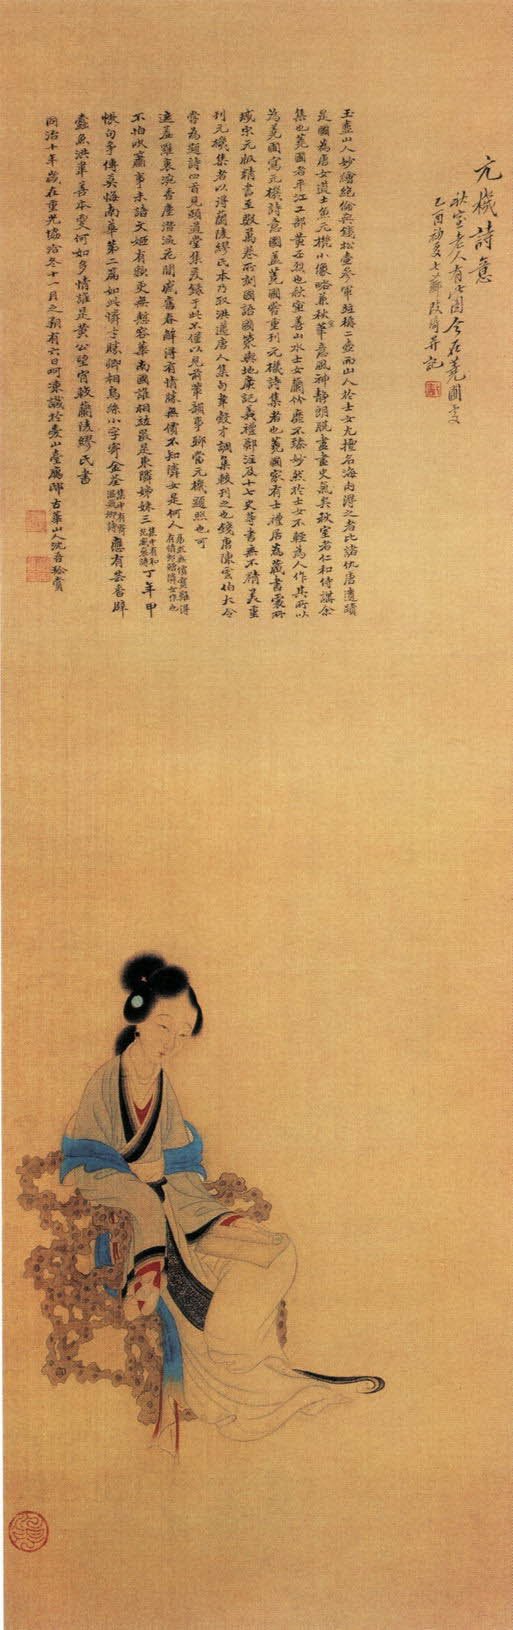 元機詩意
秋室老人有此圖今在蕘圃處
乙酉初夏七薌改琦并記
玉壺山人妙繪絕倫與錢松壺參軍並稱二壺而山人於士女尤擅名海內得之者比諸仇唐遺蹟
是圖為唐女道士魚元機小像略兼秋室華意風神靜朗脫盡畫史氣矣秋室者仁和侍講余
集也蕘圃者平江工部黃丕烈也秋室善山水士女蘭竹靡不臻妙然於士女不輕為人作其所以
為蕘圃寫元機詩意圖蓋蕘圃嘗重刊元機詩集者也蕘圃家有士禮居為藏書最所
藏宋元版精書至數萬卷所刻國語國策輿地廣記義禮鄭注及十七史等書無不精美重
刊元機集者以得蘭陵繆氏本乃取洪邁唐人集句韋縠才調集教刊之也錢唐陳雲伯大令
嘗為題詩四首見頤道堂集爰錄于此不僅以見前輩韻事聊當元機題照也可
遮羞雖裹涴香塵潛派花間感舊春解得有情無價不知隣女是何人
不怕吹蕭事未諧文姬有
誰相並最是東隣姊妹三
丁年甲
帳句爭傳
南華第二篇如此憐才勝
小字寄金荃
應有芸香辟
蠹魚洪韋善本更何如多情誰是黃公望宵載蘭陵繆氏書
同治十年歲在重光協洽冬十一月之朔有六日呵凍識於
古華山人沈